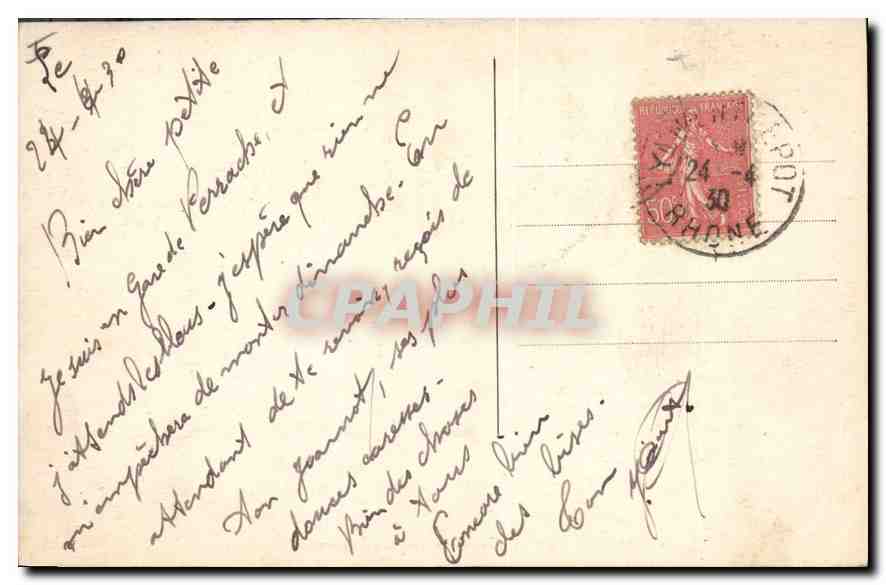 Le
24-4-30
Bien chère petite
Je suis en Gare de Perrache, et
j'attends les colons - j'espère que rien ne
m'empêchera de monter dimanche - En
attendant de te revoir, reçois de
ton Jeannot, ses plus
douces caresses -
Bien des choses
à tous
Encore bien
des bises.
Ton
REPUBLIQUE FRANÇAISE
50c
DEPOT
24 -4
30
RHONE
CPAPHIL